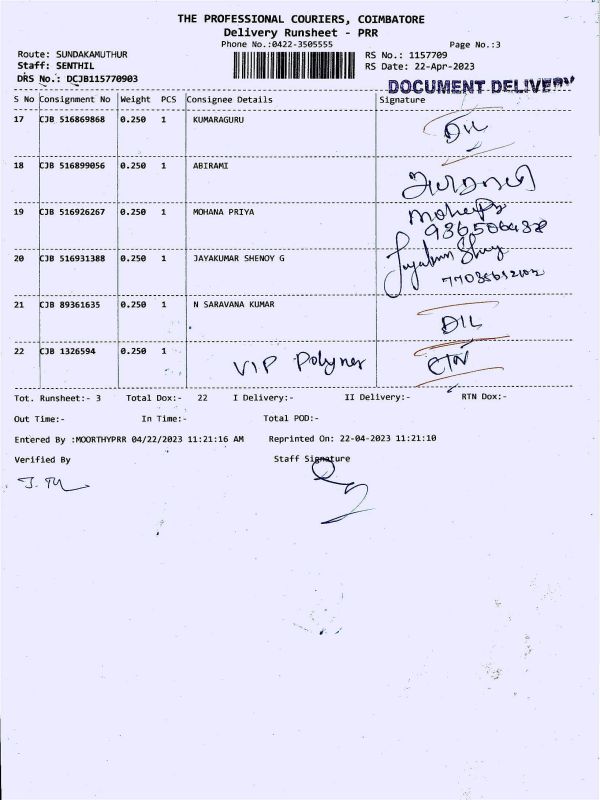 THE PROFESSIONAL COURIERS, COIMBATORE
Delivery Runsheet - PRR
Phone No.:0422-3505555 Page No.:3
Route: SUNDAKAMUTHUR RS No.: 1157709
Staff: SENTHIL RS Date: 22-Apr-2023
DRS No.: DCJB115770903
DOCUMENT DELIVERY
S No Consignment No Weight PCS Consignee Details Signature
17 CJB 516869868 0.250 1 KUMARAGURU D/L
18 CJB 516899056 0.250 1 ABIRAMI
19 CJB 516926267 0.250 1 MOHANA PRIYA
20 CJB 516931388 0.250 1 JAYAKUMAR SHENOY G
21 CJB 89361635 0.250 1 N SARAVANA KUMAR D/L
22 CJB 1326594 0.250 1 VIP Polymer
Tot. Runsheet:- 3 Total Dox:- 22 I Delivery:- II Delivery:- RTN Dox:-
Out Time:- In Time:- Total POD:-
Entered By :MOORTHYPRR 04/22/2023 11:21:16 AM Reprinted On: 22-04-2023 11:21:10
Verified By Staff Signature